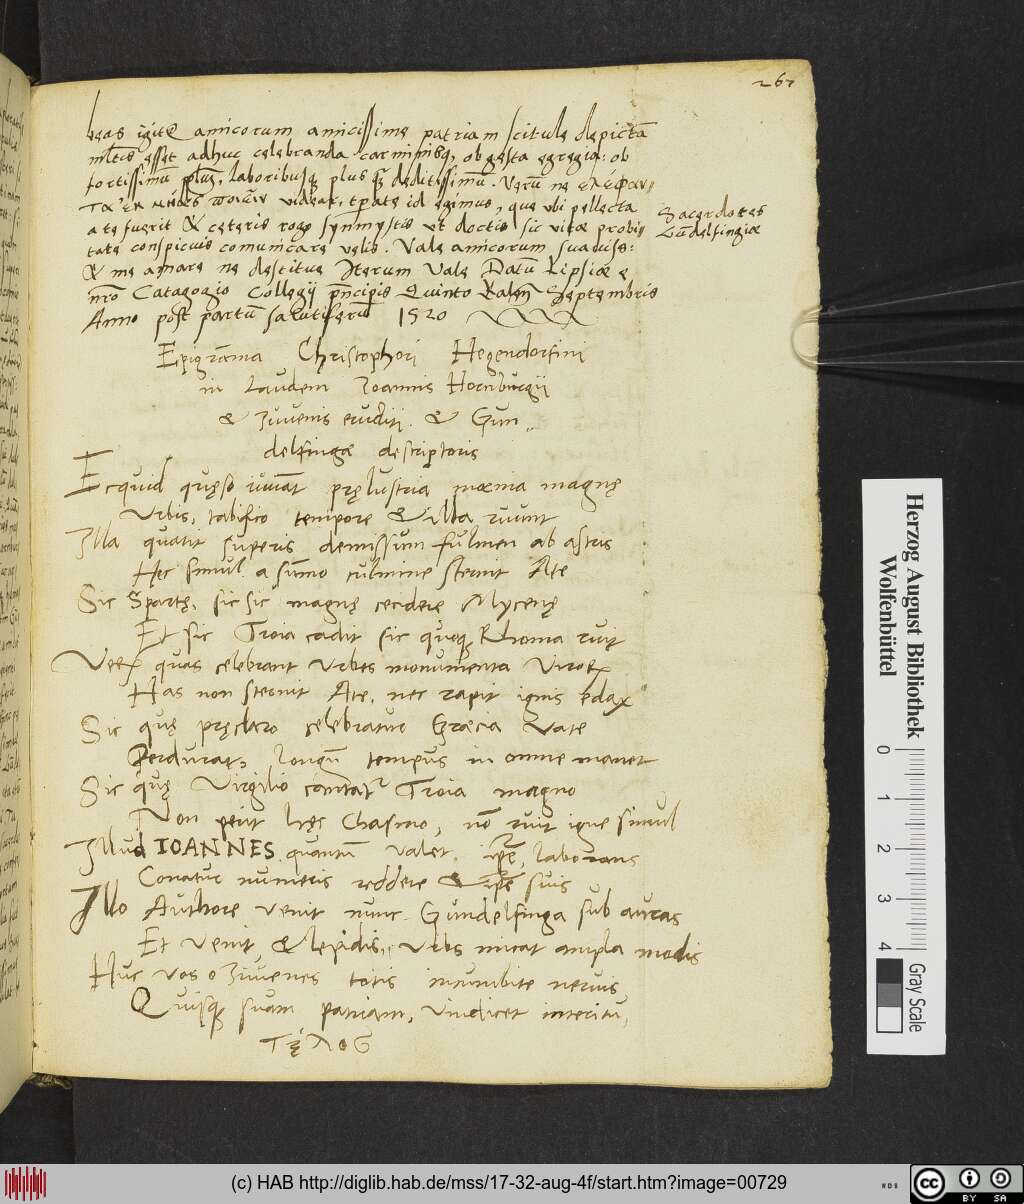 267
beas igitur amicorum amicissime patriam scitule depictā
esset adhuc celebranda carminibusq, ob gesta egregia: ob
fortissimū laboribusq plus deditissimū. Verū ne ελέφαν
videar, id egimus, que ubi pellecta
a te fuerit & ceteris rogo synmystis ut doctis sic vitae probi
tate conspicuis comunicare velis. Vale amicorum suaviss:
& me amare ne destitue Iterum vale Datū Lipsiae e
nr̄o Catagogio Collegij prīcipis Quinto Kaleñ Septembris
Anno post partū salutiferū 1520
Sacerdotes
Gūdelfingiae
Epigrāma Christophori Hegendorfini
in laudem Ioannis Hornburgij
& Iuvenis eruditi. & Gun
delfingae descriptoris
Ecquid quęso iuvāt pręlustria mœnia magnę
Urbis, tabifico tempore & illa ruunt
Illa quatit superis demissum fulmen ab astris
Hęc simul a sūmo culmine sternit Ate
Sic Spartę, sic sic magnę cecidere Mycenę
Et sic Troia cadit sic quoq Rhoma ruit
Verū quas celebrant urbes monumenta virorū
Has non sternit Ate, nec rapit ignis edax
Sic quę pręclaro celebratur Græcia vate
Perdurat, longū tempus in omne manet
Sic quę Virgilio cantatr Troia magno
Non perit hęc Chasmo, nō ruit igne simul
Illud IOANNES quantū valet. laborans
Conatur numeris reddere & suis
Illo Authore venit nunc Gundelfinga sub auras
Et venit, & lepidis, urbs micat ampla modis
Huc vos o Iuvenes totis incumbite nervis
Quisq suam patriam, vindicet interitu,
Τέλος
Herzog August Bibliothek
Wolfenbüttel
0 1 2 3 4
Gray Scale
(c) HAB http://diglib.hab.de/mss/17-32-aug-4f/start.htm?image=00729
WDB
cc BY SA